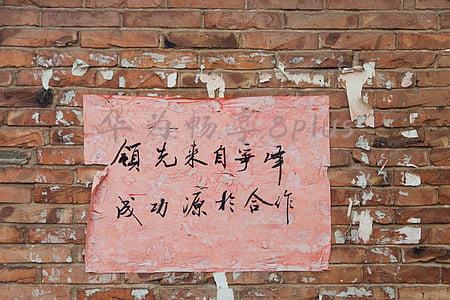 华为畅享8plus
领先来自争峰
成功源於合作